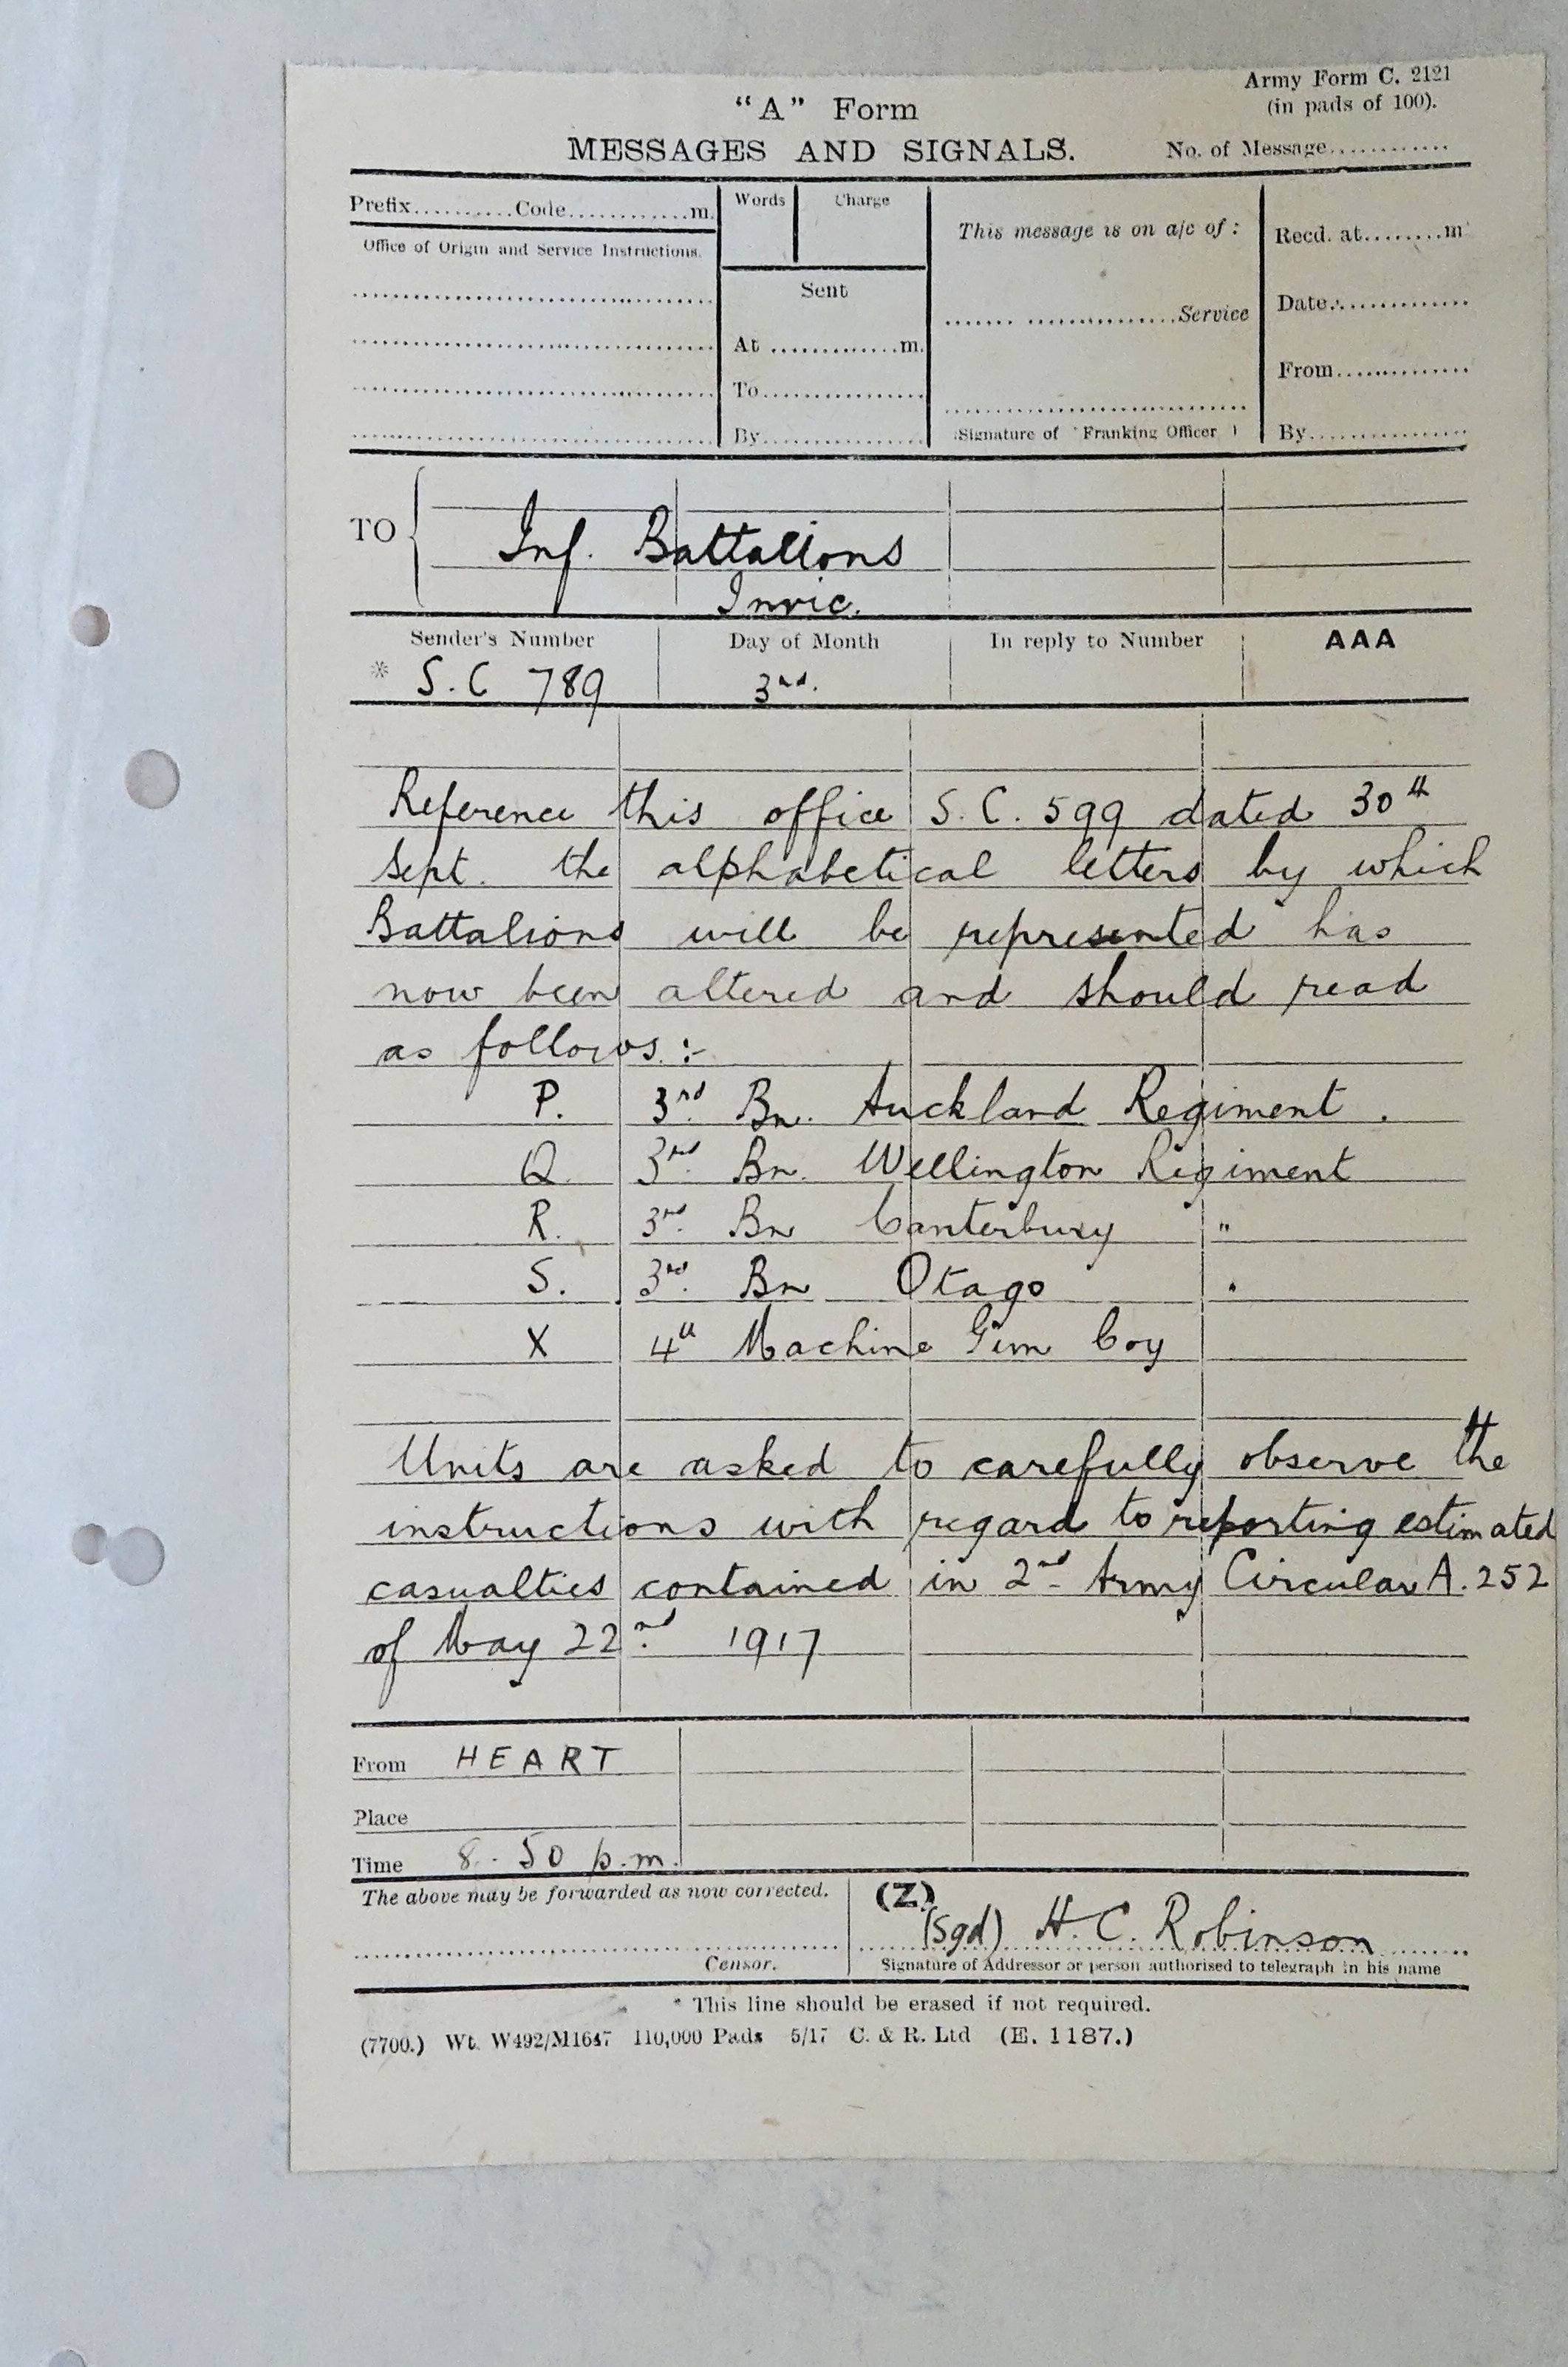 Army Form C. 2121
"A" Form
(in pads of 100).
MESSAGES AND SIGNALS.
No. of Message............
Prefix..........Code............m.
Words
Charge
This message is on a/c of :
Recd. at........m
Office of Origin and Service Instructions.
Sent
Date..............
....... ..............Service
At .............m.
From..............
To................
By................
Signature of Franking Officer
By................
TO
Inf. Battalions
Invic.
Sender's Number
Day of Month
In reply to Number
AAA
* S.C 789
3rd.
Reference this office S.C. 599 dated 30th
Sept. the alphabetical letters by which
Battalions will be represented has
now been altered and should read
as follows :-
P. 3rd. Bn. Auckland Regiment.
Q. 3rd. Bn. Wellington Regiment
R. 3rd. Bn Canterbury "
S. 3rd. Bn Otago "
X 4th Machine Gun Coy
Units are asked to carefully observe the
instructions with regard to reporting estimated
casualties contained in 2nd Army Circular A. 252
of May 22nd 1917
From HEART
Place
Time 8.50 p.m.
The above may be forwarded as now corrected.
(Z)
(Sgd) H. C. Robinson
Censor.
Signature of Addressor or person authorised to telegraph in his name
* This line should be erased if not required.
(7700.) Wt. W492/M1647 110,000 Pads 5/17 C. & R. Ltd (E. 1187.)